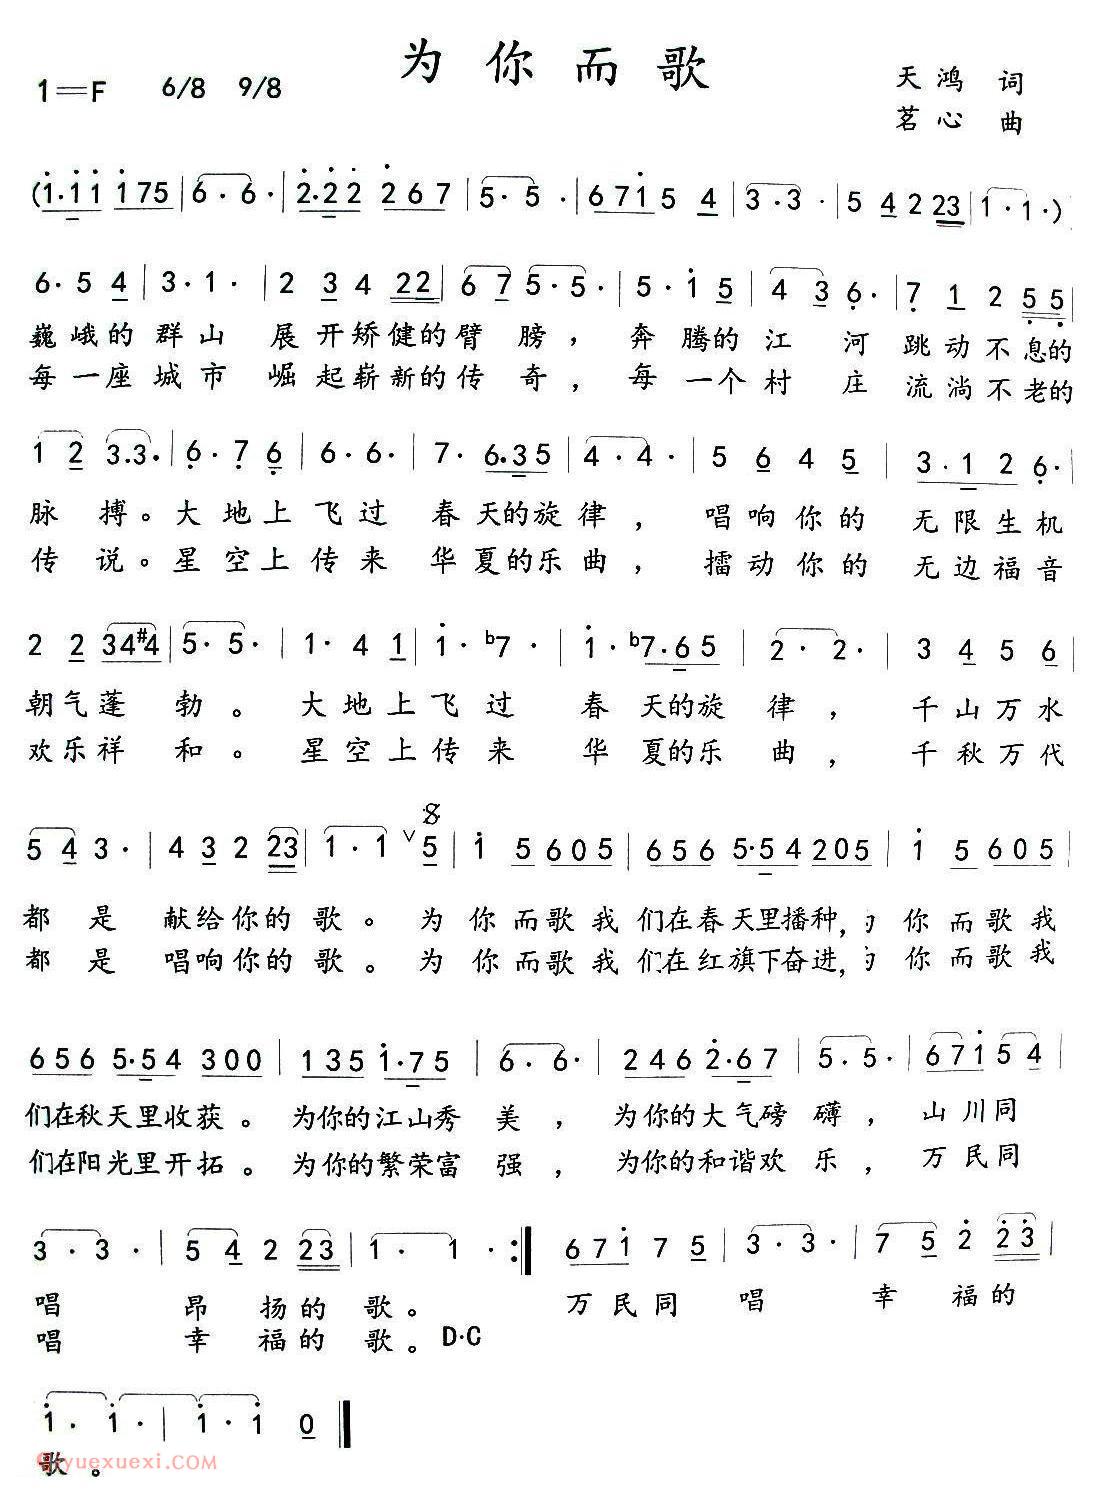 为你而歌
1=F 6/8 9/8
天鸿 词
茗心 曲
(1·11 175|6·6·|2·22 267|5·5·|6715 4|3·3·|5 4 2 23|1·1·)
6·5 4|3·1·|2 3 4 22|6 7 5·5·|5·1 5|4 3 6·|7 1 2 55|
巍峨的群山 展开矫健的臂膀，奔腾的江河跳动不息的
每一座城市 崛起崭新的传奇，每一个村庄流淌不老的
1 2 3·3·|6·7 6|6·6·|7· 6·35|4·4·|5 6 4 5|3·1 2 6·|
脉搏。大地上飞过 春天的旋律，唱响你的无限生机
传说。星空上传来 华夏的乐曲，擂动你的无边福音
2 2 34#4|5·5·|1·4 1|1·b7·|1· b7·65|2·2·|3 4 5 6|
朝气蓬勃。大地上飞过 春天的旋律，千山万水
欢乐祥和。星空上传来 华夏的乐曲，千秋万代
5 4 3·|4 3 2 23|1·1 ∨ 5|1 5 605|656 5·54 205|1 5 605|
都是 献给你的歌。为你而歌我们在春天里播种，为你而歌我
都是 唱响你的歌。为你而歌我们在红旗下奋进，为你而歌我
656 5·54 300|135 1·75|6·6·|246 2·67|5·5·|671 5 4|
们在秋天里收获。为你的江山秀美，为你的大气磅礴，山川同
们在阳光里开拓。为你的繁荣富强，为你的和谐欢乐，万民同
3·3·|5 4 2 23|1·1·:‖ 671 7 5|3·3·|7 5 2 23|
唱 昂扬的歌。 万民同唱 幸福的
唱 幸福的歌。D·C
1·1·|1·1 0‖
歌。
yuexuexi.COM